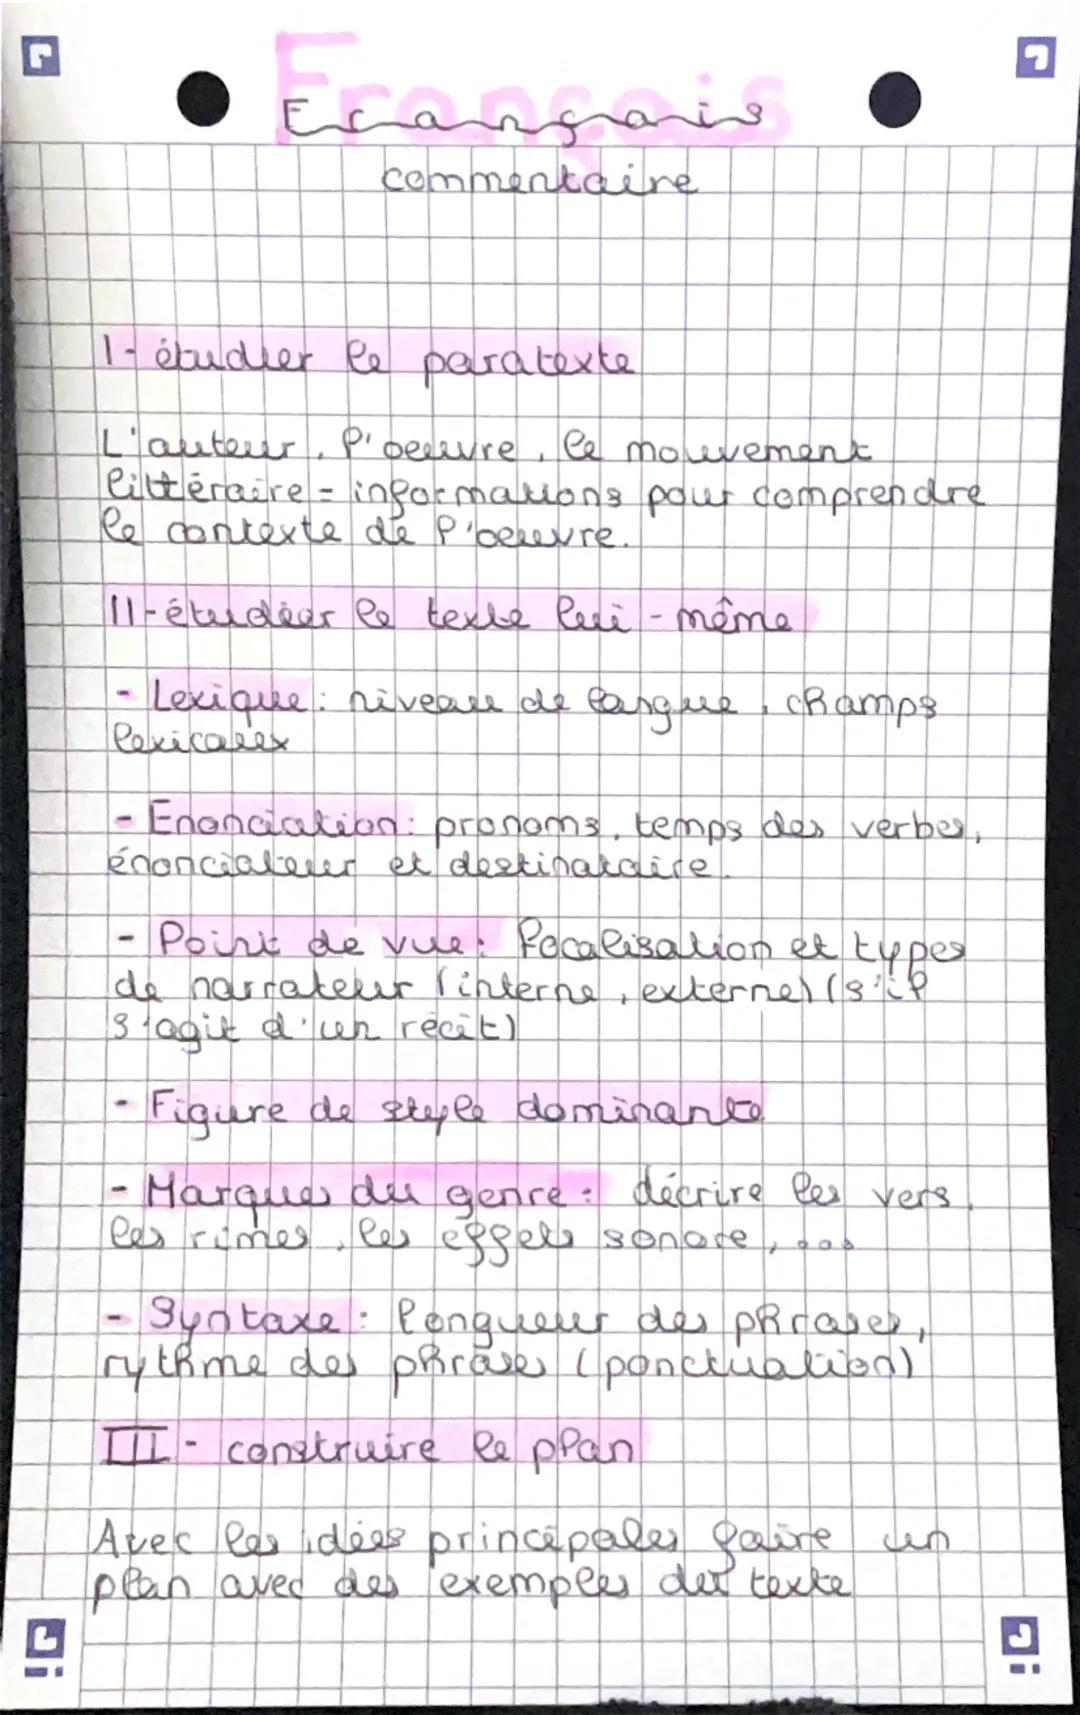 Français
commentaire
I- étudier le paratexte
L'auteur, l'oeuvre, le mouvement
littéraire = informations pour comprendre
le contexte de l'oeuvre.
II- étudier le texte lui-même
- Lexique : niveau de langue, champs
lexicaux
- Enonciation : pronoms, temps des verbes,
énonciateur et destinataire.
- Point de vue : focalisation et types
de narrateur (interne, externe) (s'il
s'agit d'un récit)
- Figure de style dominante
- Marques du genre : décrire les vers,
les rimes, les effets sonore, ...
- Syntaxe : longueur des phrases,
rythme des phrase (ponctuation)
III- construire le plan
Avec les idées principales faire un
plan avec des exemples du texte